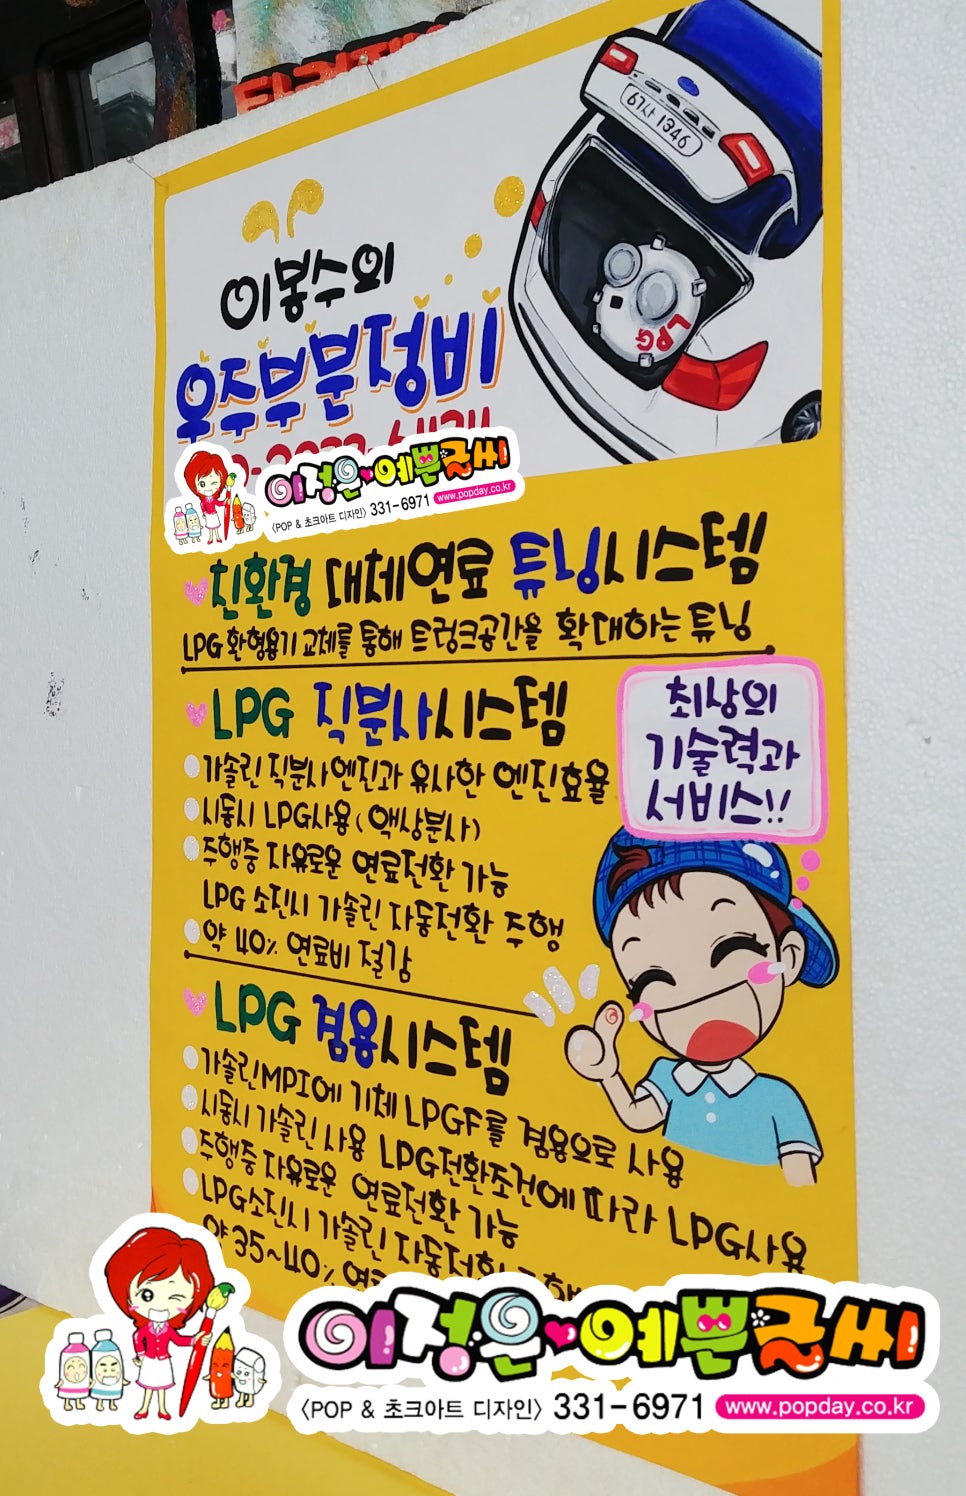 67사 1346
LPG
이봉수의
우주부분정비
이정은♥예쁜글씨
〈POP & 초크아트 디자인〉 331-6971 www.popday.co.kr
친환경 대체연료 튜닝시스템
LPG 환형용기 교체를 통해 트렁크공간을 확대하는 튜닝
LPG 직분사시스템
가솔린 직분사엔진과 유사한 엔진효율
시동시 LPG사용(액상분사)
주행중 자유로운 연료전환 가능
LPG 소진시 가솔린 자동전환 주행
약 40% 연료비 절감
최상의
기술력과
서비스!!
LPG 겸용시스템
가솔린MPI에 기체 LPGF를 겸용으로 사용
시동시 가솔린 사용 LPG전환조건에 따라 LPG사용
주행중 자유로운 연료전환 가능
LPG소진시 가솔린 자동전환 주행
약 35~40%
이정은♥예쁜글씨
〈POP & 초크아트 디자인〉 331-6971 www.popday.co.kr